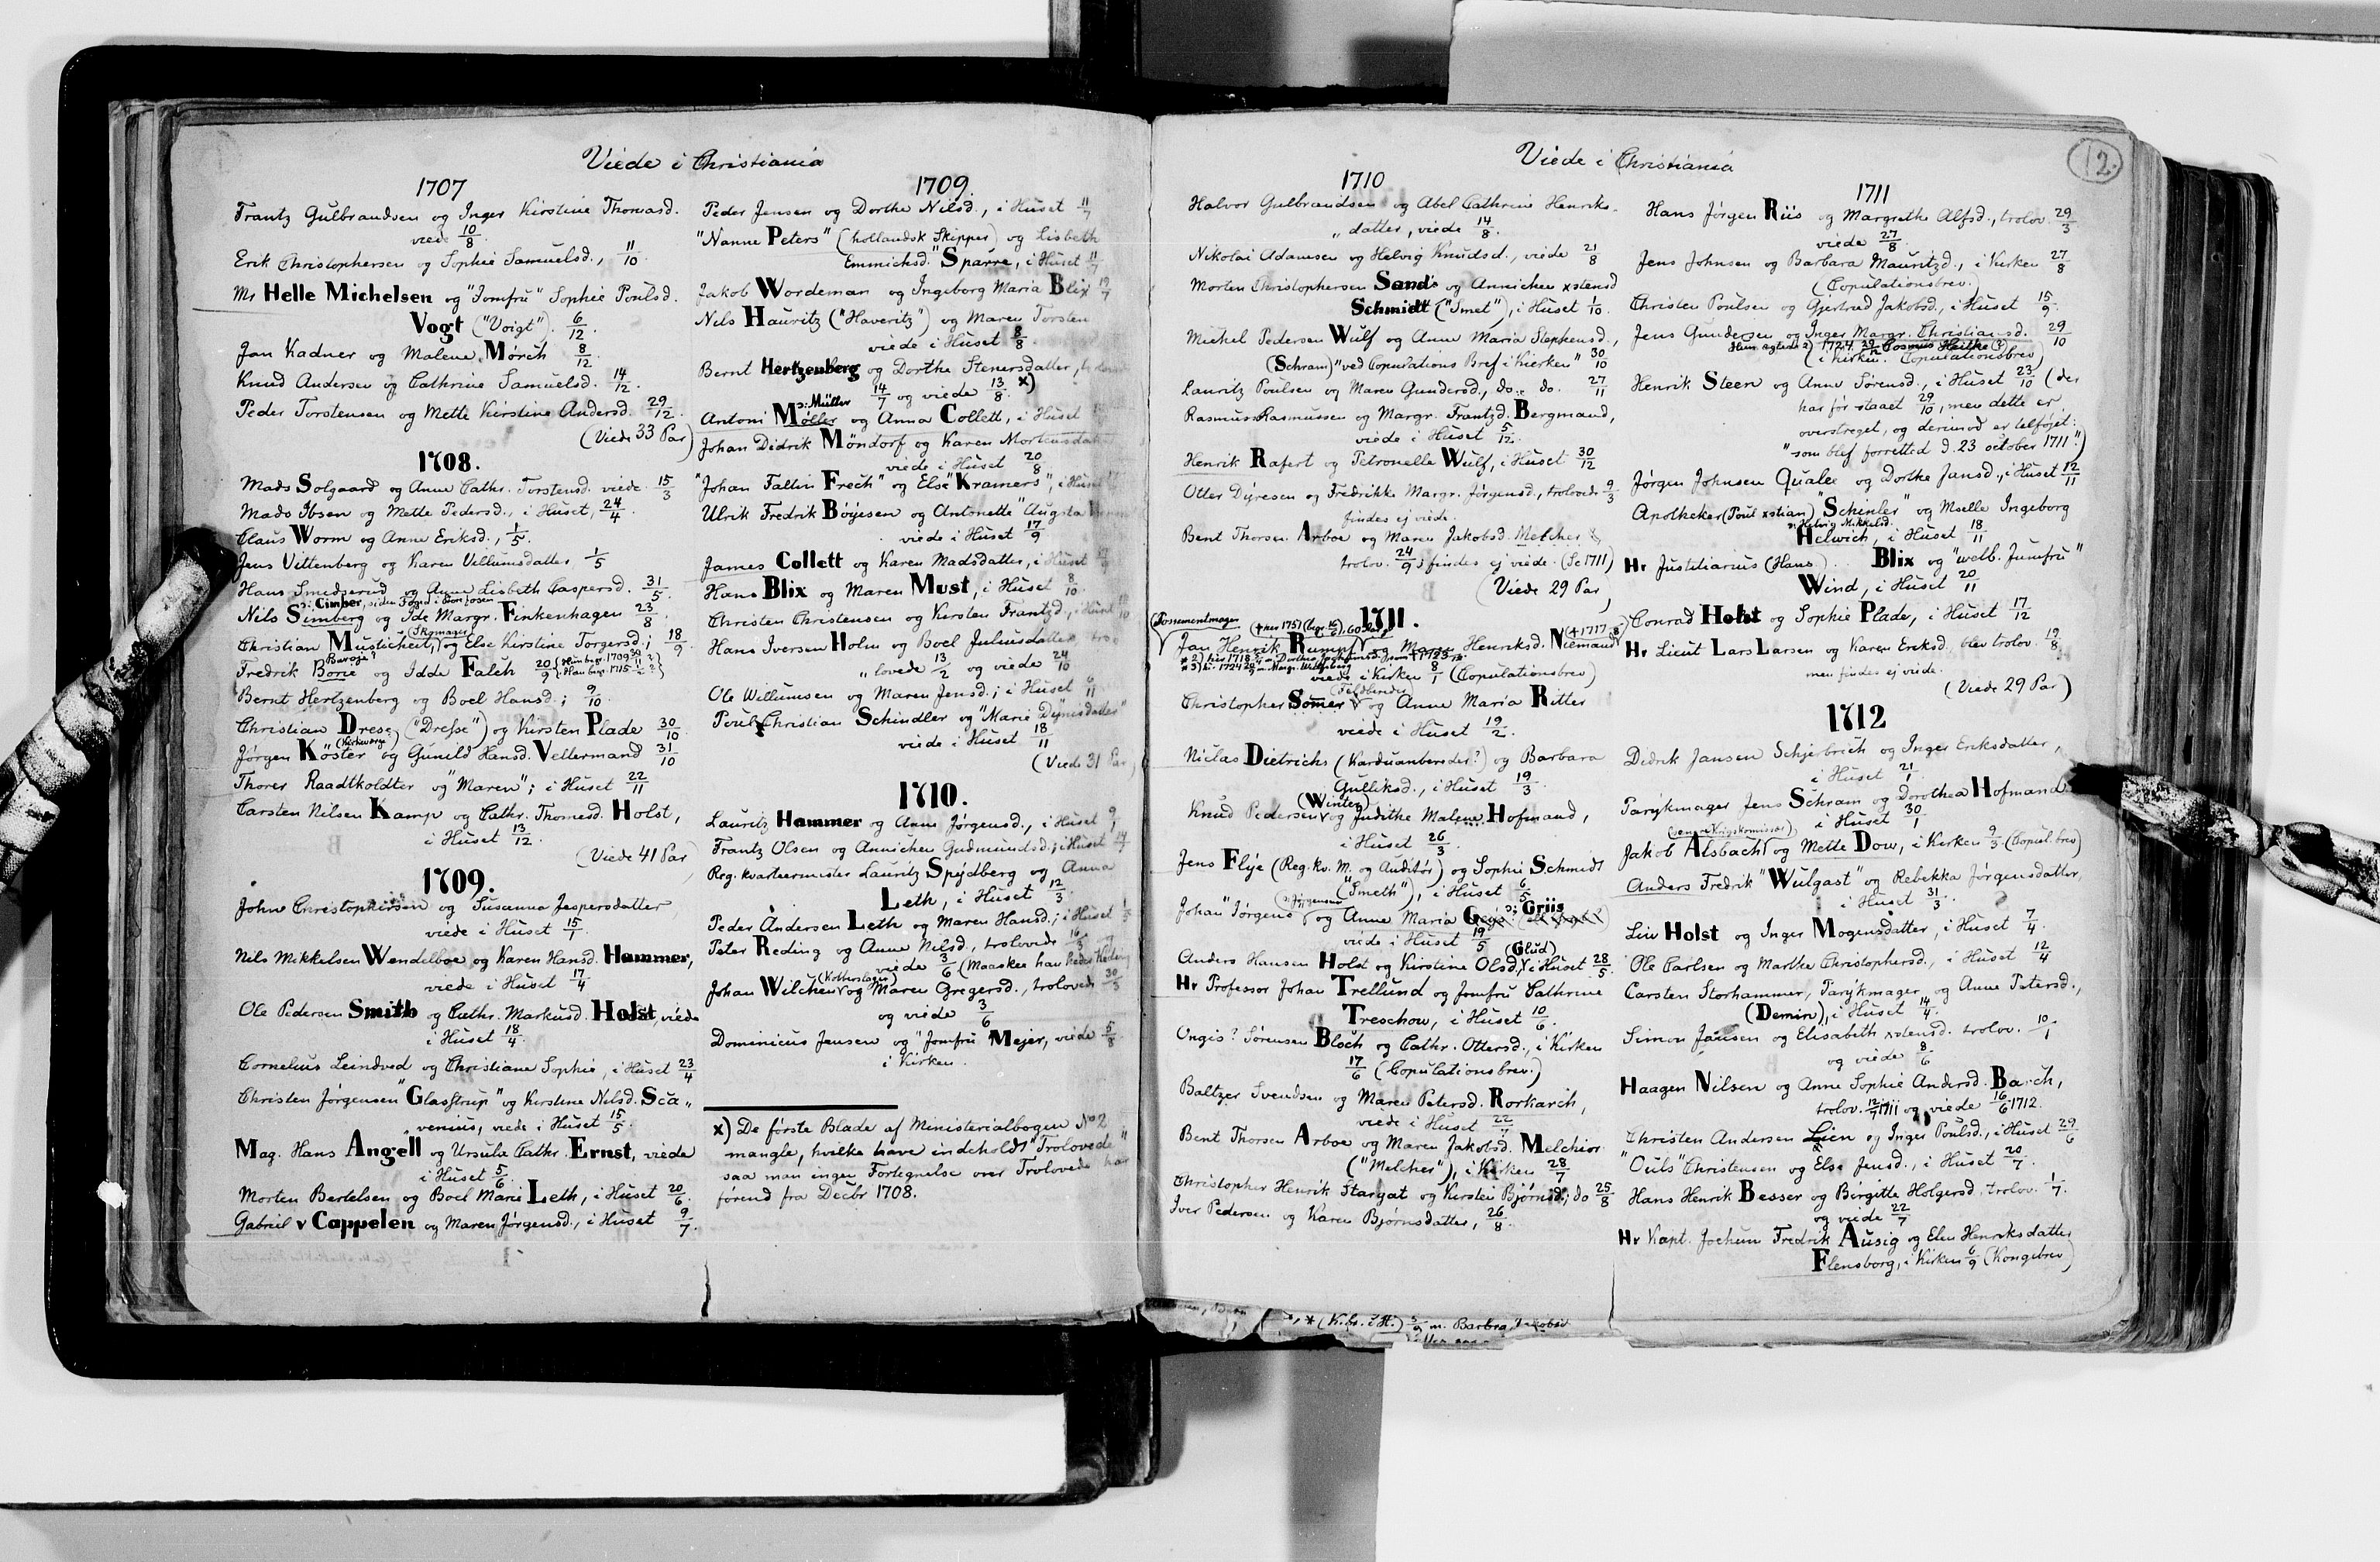 Viede i Christiania
1707
Frantz Gulbrandsen og Inger Kirstine Thomasd.
viede 10/8.
Erik Christophersen og Sophie Samuelsd., 11/10.
Mr Helle Michelsen og "Jomfru" Sophie Poulsd.
Vogt ("Voigt") 6/12.
Jan Kadner og Malene Mørch 8/12.
Knud Andersen og Cathrine Samuelsd. 14/12.
Peder Torstensen og Mette Kirstine Andersd. 29/12.
(Viede 33 Par)
1708.
Mads Solgaard og Anne Cathr. Torstensd. viede 15/3
Mads Ibsen og Mette Pedersd., i Huset, 24/4.
Claus Worm og Anne Eriksd., 1/5.
Jens Vittenberg og Karen Villumsdatter 1/5
Hans Smedserud og Anne Lisbeth Caspersd. 31/5.
ɔ: Cimber, siden Foged i
Nils Simberg og Ide Margr. Finkenhagen 23/8.
(Skomager)
Christian Musticheit, og Else Kirstine Torgersd.; 18/9.
Fredrik Borre og Idde Falch 20/9
Bernt Hertzenberg og Boel Hansd.; 9/10.
Christian Drese ("Dresse") og Kirsten Plade 30/10.
(Kirkeværge)
Jørgen Köster og Gunild Hansd. Vellermand 31/10
Thorer Raadtkoldter og "Maren"; i Huset 22/11
Carsten Nilsen Kamp og Cathr. Thomesd. Holst,
i Huset 13/12.
(Viede 41 Par)
1709.
John Christophersen og Susanna Jespersdatter
viede i Huset 15/1.
Nils Mikkelsen Wendelboe og Karen Hansd. Hammer,
viede i Huset 17/4
Ole Pedersen Smith og Cathr. Markusd. Holst, viede
i Huset 18/4.
Cornelius Leindved og Christiane Sophie, i Huset 23/4
Christen Jørgensen "Glasstrup" og Kirstine Nilsd. Sca„
venius, viede i Huset 15/5.
Mag. Hans Angell og Ursula Cathr. Ernst, viede
i Huset 5/6.
Morten Bertelsen og Boel Marie Leth, i Huset 20/6.
Gabriel v Cappelen og Maren Jørgensd., i Huset 9/7.
1709.
Peder Jensen og Dorthe Nilsd., i Huset 11/7
"Nanne Peters" (hollandsk Skipper) og Lisbeth
Emmichsd. "Sparre", i Huset 11/7
Jakob Wordeman og Ingeborg Maria Blix 19/7
Nils Hauritz ("Haveritz") og Maren Torsten
viede i Huset 8/8.
Bernt Hertzenberg og Dorthe Stenersdatter,
14/7 og viede 13/8. x)
ɔ: Müller
Antoni Møller og Anna Collett, i Huset
Johan Didrik Möndorf og Karen Mortensdatt
viede i Huset 20/8
"Johan Faltin Frech" og Else "Kramers", i Huset
Ulrik Fredrik Böyesen og Antonette "Augsta
viede i Huset 17/9
James Collett og Karen Madsdatter, i Huset
Hans Blix og Maren Must, i Huset 8/10.
Christen Christensen og Kirsten Frantzd., i Huset
Hans Iversen Holm og Boel Juliusdatter tro
„lovede 13/2 og viede 24/10
Ole Willumsen og Maren Jensd.; i Huset 6/11
Poul Christian Schindler og "Marie Dÿnisdatter"
viede i Huset 18/11
(Viede 31 Par)
1710.
Lauritz Hammer og Anne Jørgensd., i Huset 9/1
Frantz Olsen og Annichen Gudmundsd.; i Huset
Reg. kvartermester Lauritz Spydberg og Anna
Leth, i Huset 12/3.
Peder Andersen Leth og Maren Hansd.; i Huset
Peter Reding og Anne Nilsd., trolovede 16/3 og
viede 3/6 (Maaskee har Peder Reding
Johan Wilchen og Maren Gregersd., trolovede 30/3
og viede 3/6
Dominicus Jensen og "Jomfru Mejer, viede 5/8
i Kirken.
x) De første Blade af Ministerialbogen No 2
mangle, hvilke have indeholdt "Trolovede"
saa man ingen Fortegnelse over Trolovede har
førend fra Decbr 1708.
Viede i Christiania
12.
1710
Halvor Gulbrandsen og Abel Cathrine Henriks-
„datter, viede 14/8.
Nikolai Adamsen og Helvig Knudsd., viede 21/8
Morten Christophersen Sand og Annichen xstensd
Schmidt ("Smet"), i Huset 1/10.
Michel Pedersen Wulf og Anne Maria Stephensd.,
(Schram)" ved Copulations Bref i Kierken" 30/10
Lauritz Poulsen og Maren Gundersd., do do. 27/11
Rasmus Rasmussen og Margr. Frantzd. Bergmand,
viede i Huset 5/12.
Henrik Rafert og Petronelle Wulf, i Huset 30/12
Otter Dÿresen og Fredrikke Margr. Jørgensd., trolovede 9/3
findes ej viede.
Bent Thorsen Arboe og Maren Jakobsd. Melcher
trolov. 24/9; findes ej viede. (Se 1711)
(Viede 29 Par)
1711.
Jan Henrik Rumpf og Maren Henriksd. Niemand
viede i Kirken 8/1 (Copulationsbrev)
(Feldbereder)
Christopher Sømer og Anne Maria Ritter
viede i Huset 19/2.
Niclas Dietrichs (Karduansbereder?) og Barbara
Gulliksd., i Huset 19/3.
(Winter)
Knud Pedersen og Judithe Malene Hofmand,
i Huset 26/3.
Jens Flÿe (Reg. kv. M. og Auditør) og Sophie Schmidt
("Smeth"), i Huset 6/5
ɔ: Jürgensen
ɔ: Griis
Johan "Jörgens og Anne Maria
viede i Huset 19/5
(Glud)
Anders Hansen Holst og Kirstine Olsd., i Huset 28/5.
Hr Professor Johan Trellund og Jomfru Cathrine
Treschow, i Huset 10/6.
Ongis? Sørensen Bloch og Cathr. Ottersd., i Kirken
17/6 (Copulationsbrev.)
Baltzer Svendsen og Maren Petersd. Rorkarch,
viede i Huset 22/
Bent Thorsen Arboe og Maren Jakobsd. Melchior
("Melcher"), i Kirken 28/7
Christopher Henrik Stargat og Kirsten Bjørnsd; do 25/8
Iver Pedersen og Karen Bjørnsdatter, 26/8.
1711
Hans Jørgen Riis og Margrethe Alfsd., trolov. 29/3
viede 27/8.
Jens Johnsen og Barbara Mauritzd., i Kirken 27/8
(Copulationsbrev.)
Christen Poulsen og Gjertrud Jakobsd., i Huset 15/9.
Jens Gundersen og Inger Margr. Christiansd. 29/10
i Kirken. Copulationsbrev)
Henrik Steen og Anne Sørensd., i Huset 23/10 (der
har før staaet 29/10, men dette er
overstreget, og derimod er tilføjet:
"som blef forretted d. 23 october 1711.")
Jørgen Johnsen Qualee og Dorthe Jansd., i Huset 12/11
Apotheker (Poul xstian) "Schinler" og Mselle Ingeborg
ɔ: Helvig Mikkelsd.
Helwich, i Huset 18/11
Hr Justitiarius (Hans) Blix og "welb. Jumfru"
Wind, i Huset 20/11
Conrad Holst og Sophie Plade, i Huset 17/12
Hr Lieut Lars Larsen og Karen Eriksd., blev trolov. 19/8
men findes ej viede.
(Viede 29 Par)
1712
Didrik Jansen Schjerbrich og Inger Eriksdatter,
i Huset 21/1.
Parykmager Jens Schram og Dorothea Hofmand
i Huset 30/1
(senere Krigskommissær)
Jakob Alsbach og Mette Dow, i Kirken 9/3 (Copul. brev)
Anders Fredrik "Wulgast" og Rebekka Jørgensdatter,
i Huset 31/3.
Liw Holst og Inger Mogensdatter, i Huset 7/4.
Ole Carlsen og Marthe Christophersd., i Huset 12/4
Carsten Storhammer, Parÿkmager og Anne Petersd.,
(Demin), i Huset 14/4.
Simon Jansen og Elisabeth xstensd. trolov. 10/1
og viede 8/6
Haagen Nilsen og Anne Sophie Andersd. Barch,
trolov. 12/7 1711 og viede 16/6 1712.
Christen Andersen Lien og Inger Poulsd., i Huset 29/6
"Ouls" Christensen og Else Jensd., i Huset 20/7.
Hans Henrik Besser og Birgitte Holgersd, trolov. 1/7.
og viede 22/7
Hr Kapt. Jochum Fredrik Ausig og Elen Henriksdatter
Flensborg, i Kirken 6/9 (Kongebrev)